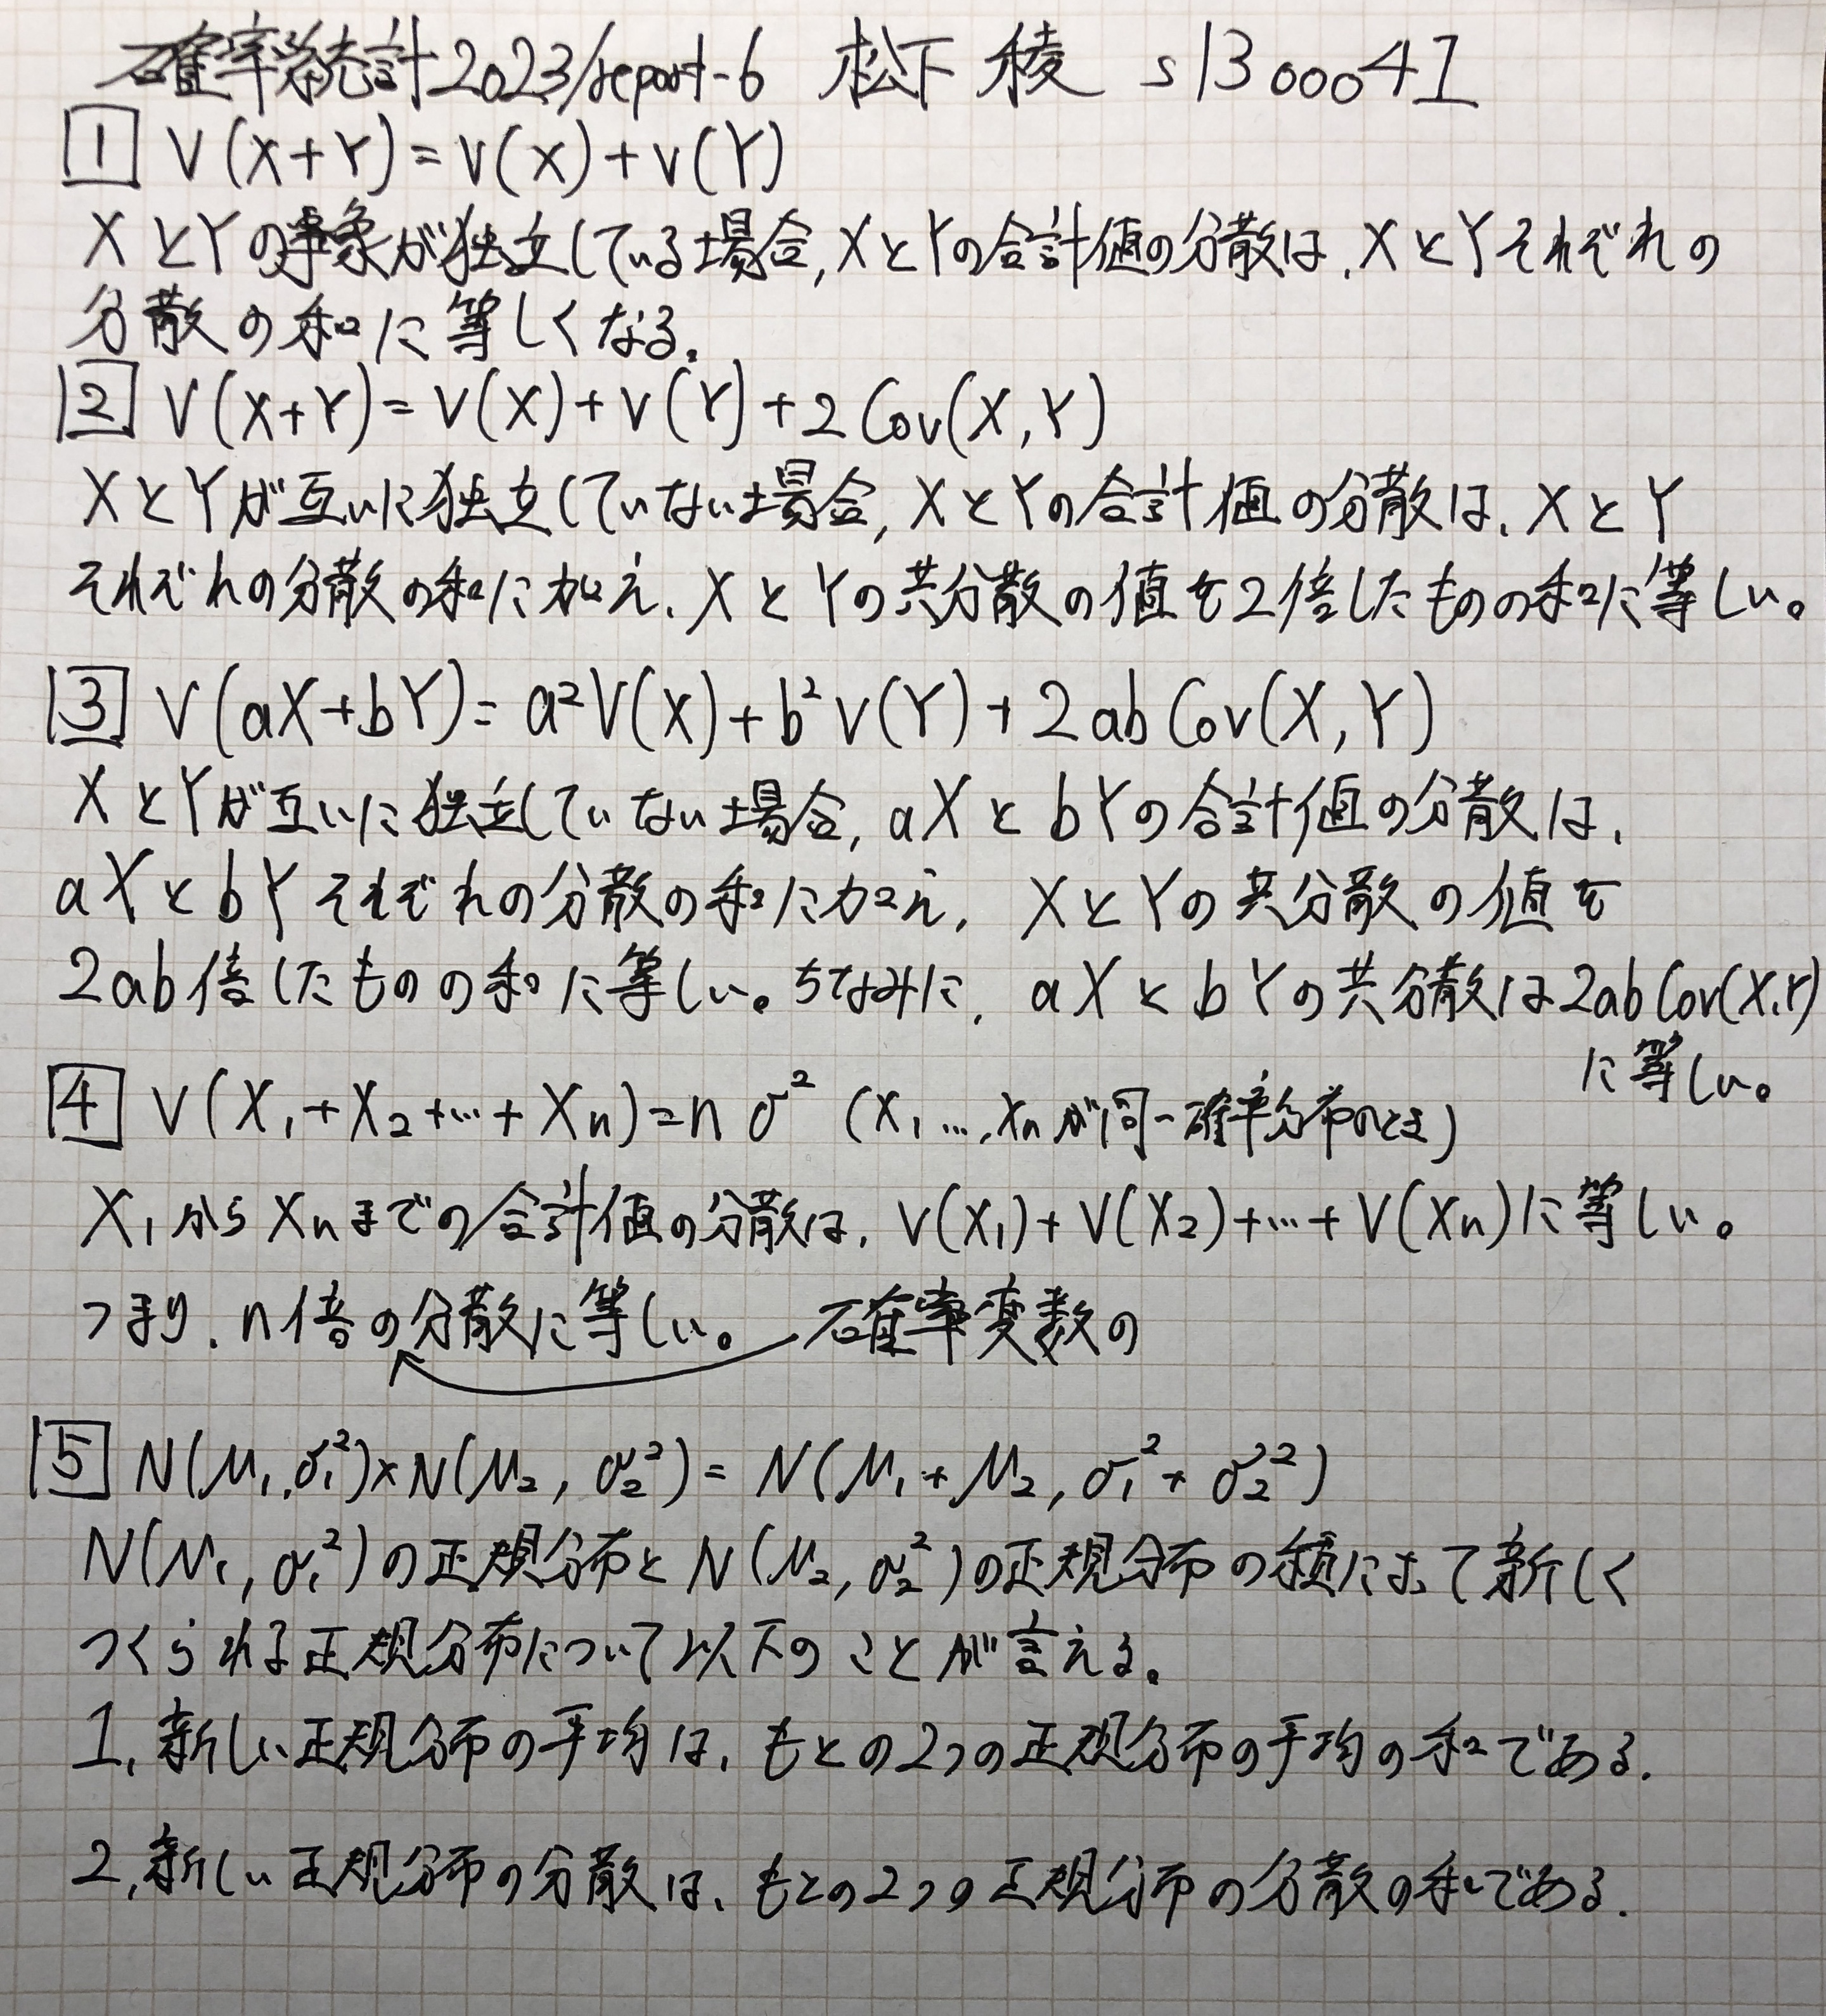 確率統計2023/report-6 松下 稜 s1300041
1 V(X+Y)=V(X)+V(Y)
XとYの事象が独立している場合,XとYの合計値の分散は、XとYそれぞれの
分散の和に等しくなる。
2 V(X+Y)=V(X)+V(Y)+2Cov(X,Y)
XとYが互いに独立していない場合,XとYの合計値の分散は、XとY
それぞれの分散の和に加え、XとYの共分散の値を2倍したものの和に等しい。
3 V(aX+bY)=a²V(X)+b²V(Y)+2abCov(X,Y)
XとYが互いに独立していない場合,aXとbYの合計値の分散は、
aXとbYそれぞれの分散の和に加え, XとYの共分散の値を
2ab倍したものの和に等しい。ちなみに, aXとbYの共分散は2abCov(X,Y)
に等しい。
4 V(X₁+X₂+…+Xn)=nσ² (X₁…,Xnが同一確率分布のとき)
X₁からXnまでの合計値の分散は、V(X₁)+V(X₂)+…+V(Xn)に等しい。
つまり、n倍の分散に等しい。 確率変数の
5 N(μ₁,σ₁²)×N(μ₂,σ₂²)=N(μ₁+μ₂,σ₁²+σ₂²)
N(μ₁,σ₁²)の正規分布とN(μ₂,σ₂²)の正規分布の積によって新しく
つくられる正規分布について以下のことが言える。
1,新しい正規分布の平均は、もとの2つの正規分布の平均の和である.
2,新しい正規分布の分散は、もとの2つの正規分布の分散の和である.